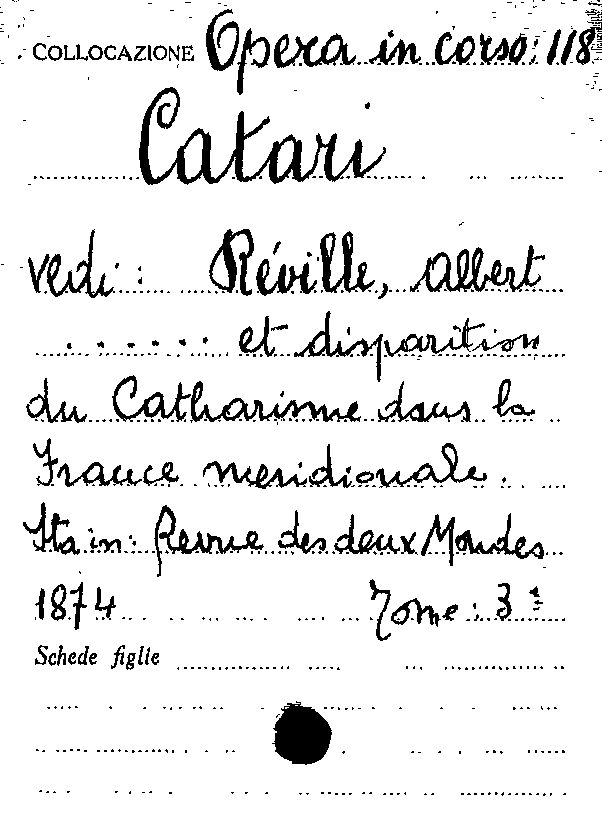 COLLOCAZIONE Opera in corso: 118
Catari
vedi: Réville, Albert
...... et disparition
du Catharisme dans la
France meridionale.
Sta in: Revue des deux Mondes
1874 Tome: 3
Schede figlie